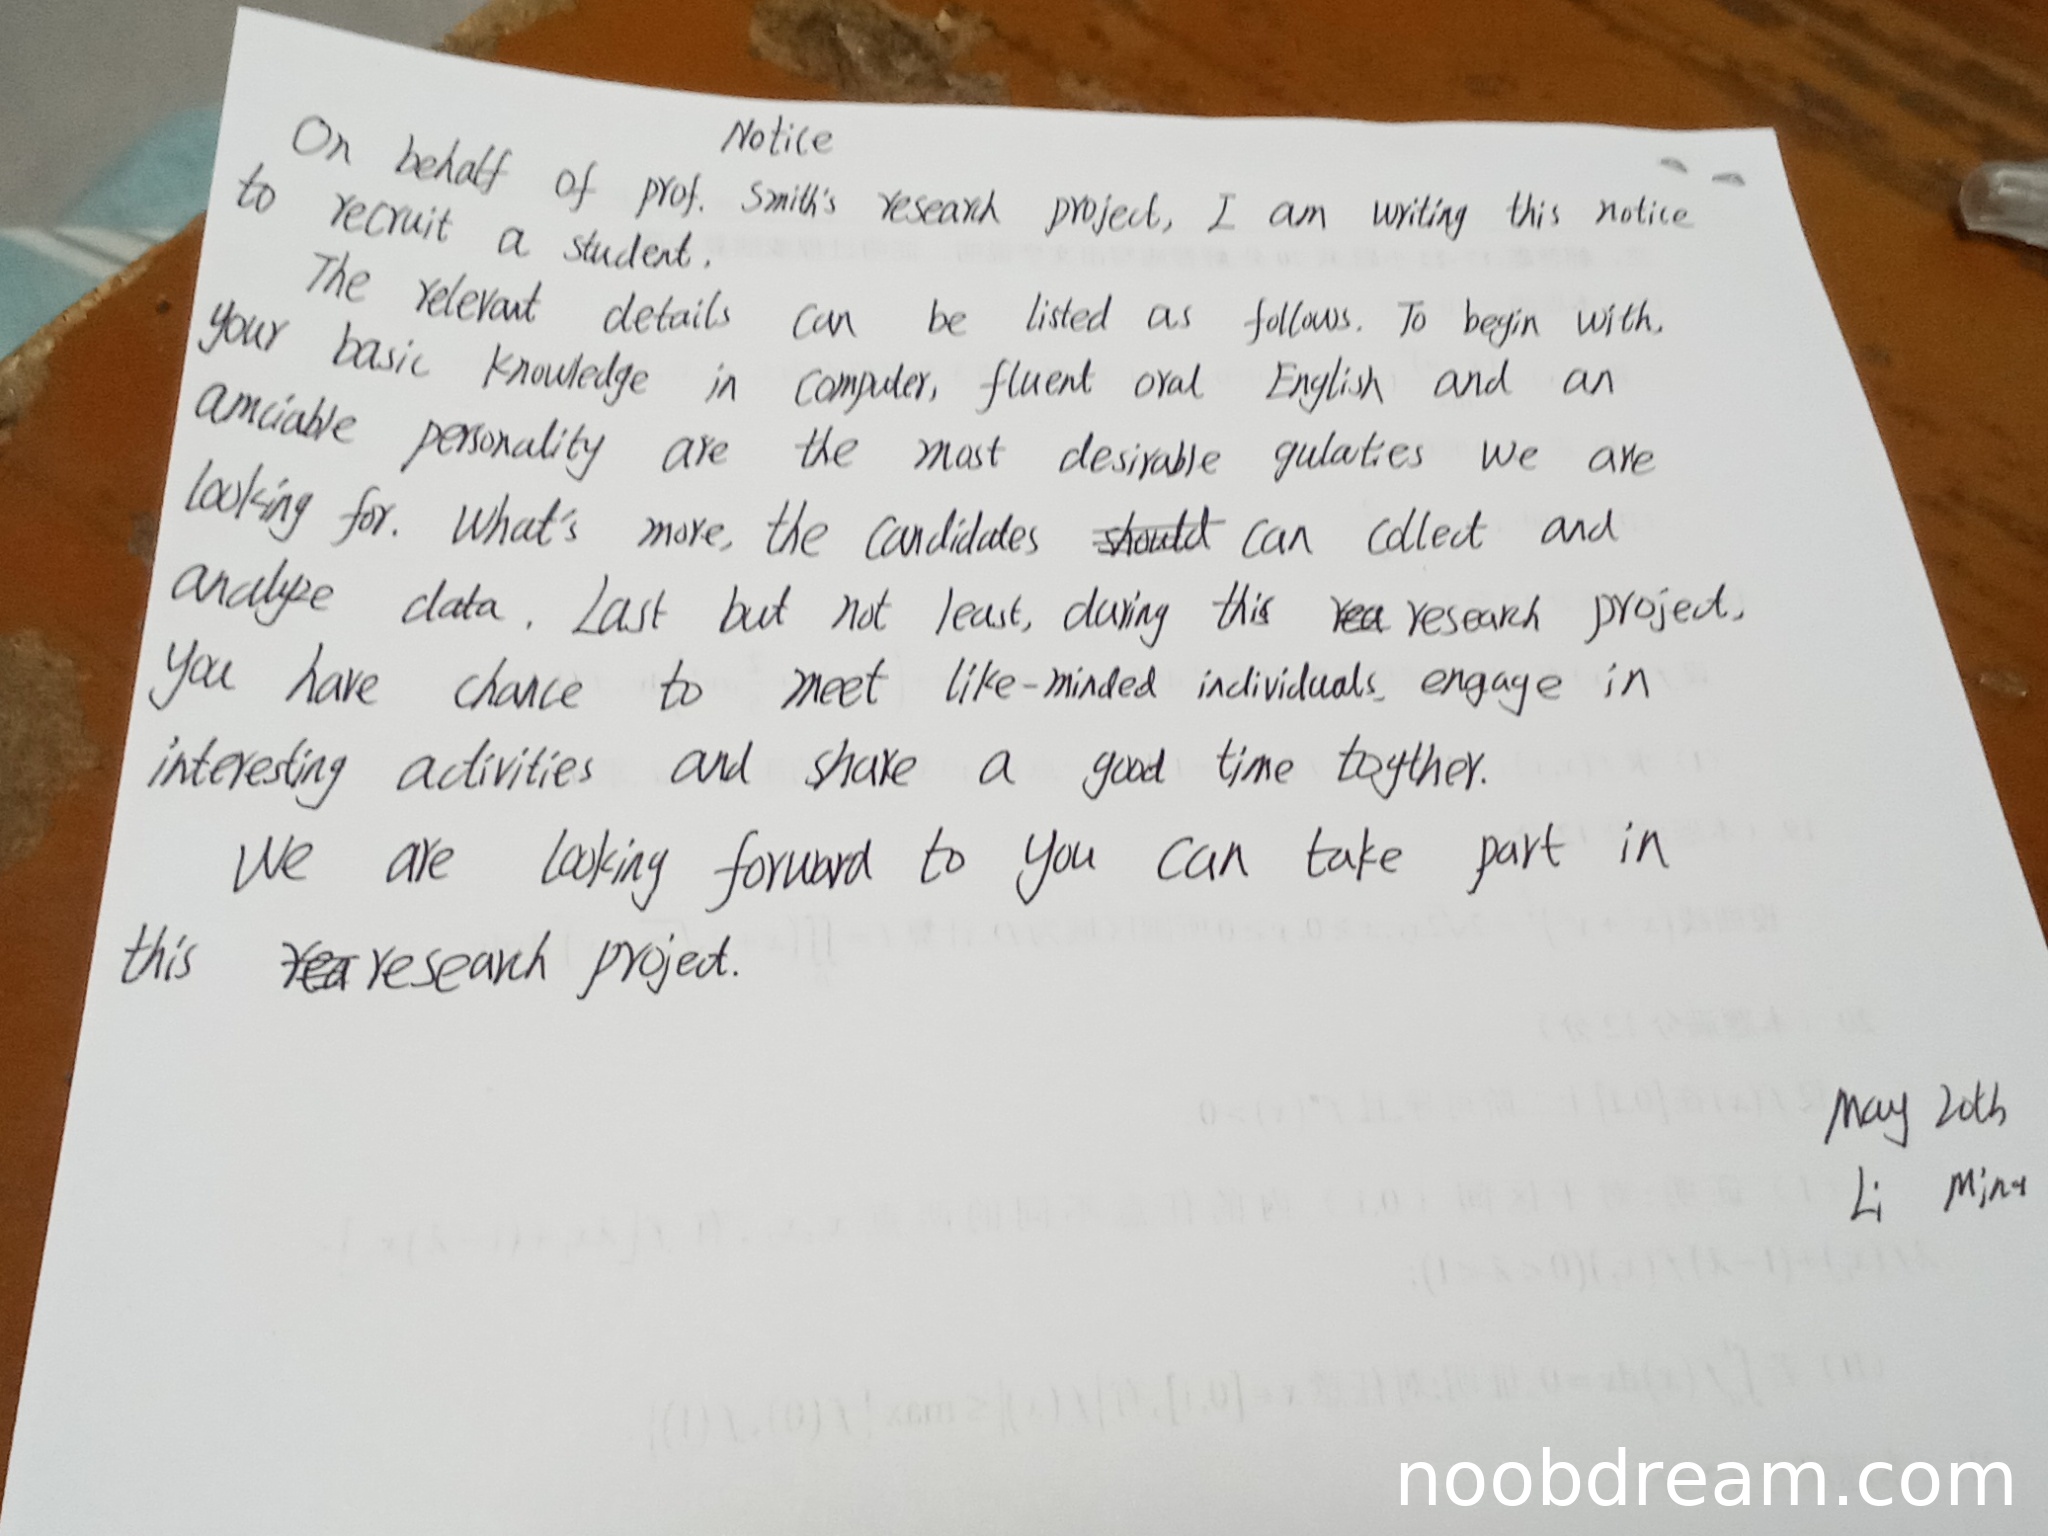 Notice
On behalf of prof. Smith's research project, I am writing this notice
to recruit a student.
The relevant details can be listed as follows. To begin with,
your basic knowledge in computer, fluent oral English and an
amciable personality are the most desirable qulaties we are
looking for. What's more, the candidates should can collect and
analyze data. Last but not least, during this rea research project,
you have chance to meet like-minded individuals, engage in
interesting activities and share a good time together.
We are looking forward to you can take part in
this rea research project.
May 20th
Li Ming
noobdream.com